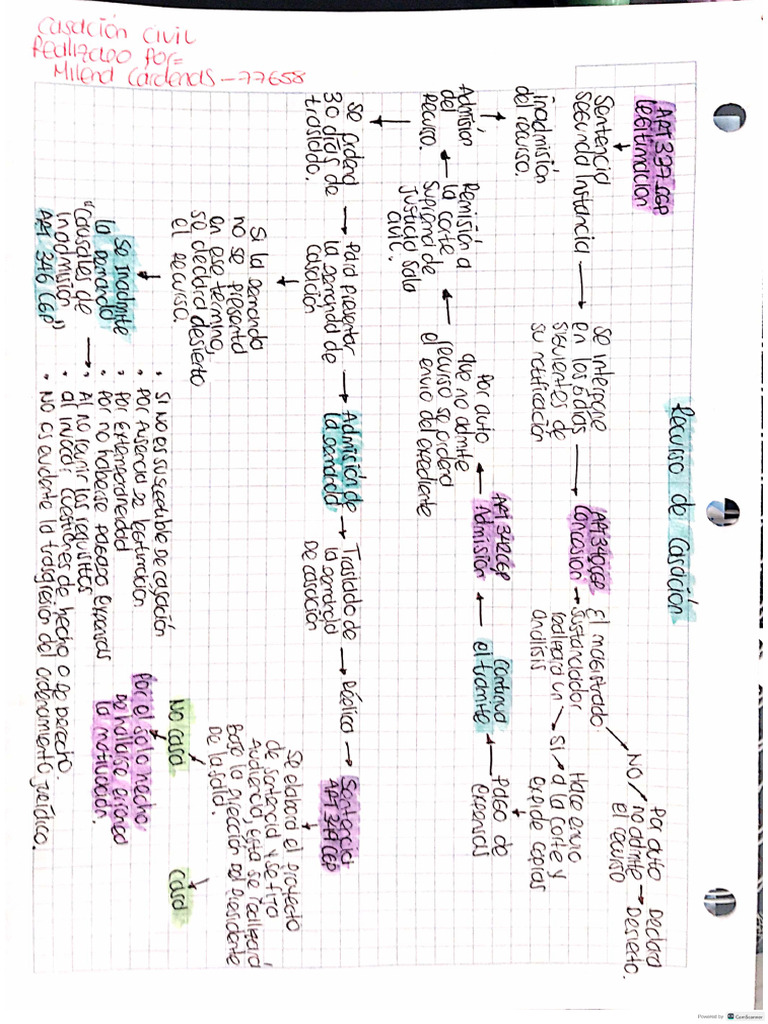 Casación Civil
Realizado por=
Milena Cardenas - 77658
Recurso de Casación
ART 337 CGP
Legitimación
Sentencia
Segunda Instancia
Se interpone
en los 5 días
siguientes de
su notificación
ART 340 CGP
Concesión
El magistrado
sustanciador
realizará un
análisis
NO
Por auto
no admite
el recurso
Declara
Desierto.
SI
Hace envio
a la corte y
expide copias
Pago de
expensas
continua
el tramite
ART 342 CGP
Admisión
Por auto
que no admite
recurso se ordena
el envio del expediente
Remisión a
la corte
Suprema de
Justicia Sala
Civil.
Admisión
del
Recurso.
inadmisión
del recurso.
Se ordena
30 días de
traslado.
Para presentar
la demanda de
casación
Si la demanda
no se presenta
en ese termino,
se declara desierto
el recurso.
Admisión de
la demanda
Traslado de
la demanda
de casación
Réplica
Sentencia
ART 349 CGP
Se elabora el proyecto
de sentencia y se fija
Audiencia, esta se realizará
bajo la dirección del Presidente
de la sala.
Casa
No casa
Por el solo hecho
de hallarse erronea
la motivación.
Se inadmite
la demanda
"Causales de
inadmisión"
ART 346 CGP
• Si no es susceptible de casación
• Por ausencia de legitimación
• Por extemporaneidad
• Por no haberse pagado expensas
• Al no reunir los requisitos
• al invocar cuestiones de hecho o de derecho.
• No es evidente la trasgresión del ordenamiento jurídico.
Powered by CamScanner